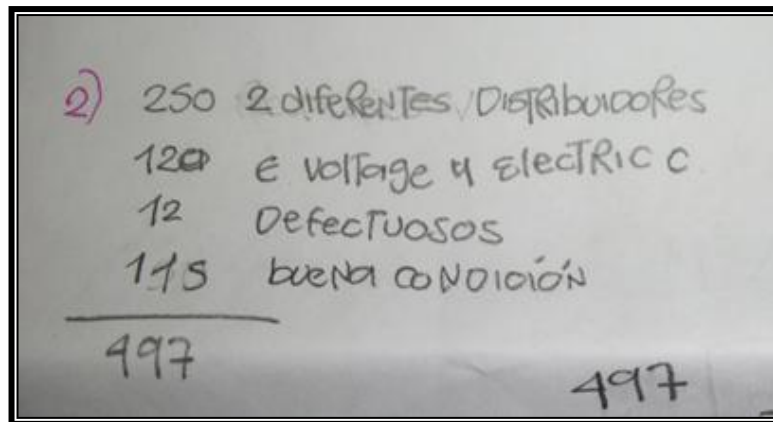 2) 250 2 diferentes Distribuidores
120 E voltage y Electric C
12 Defectuosos
115 buena condición
497
497